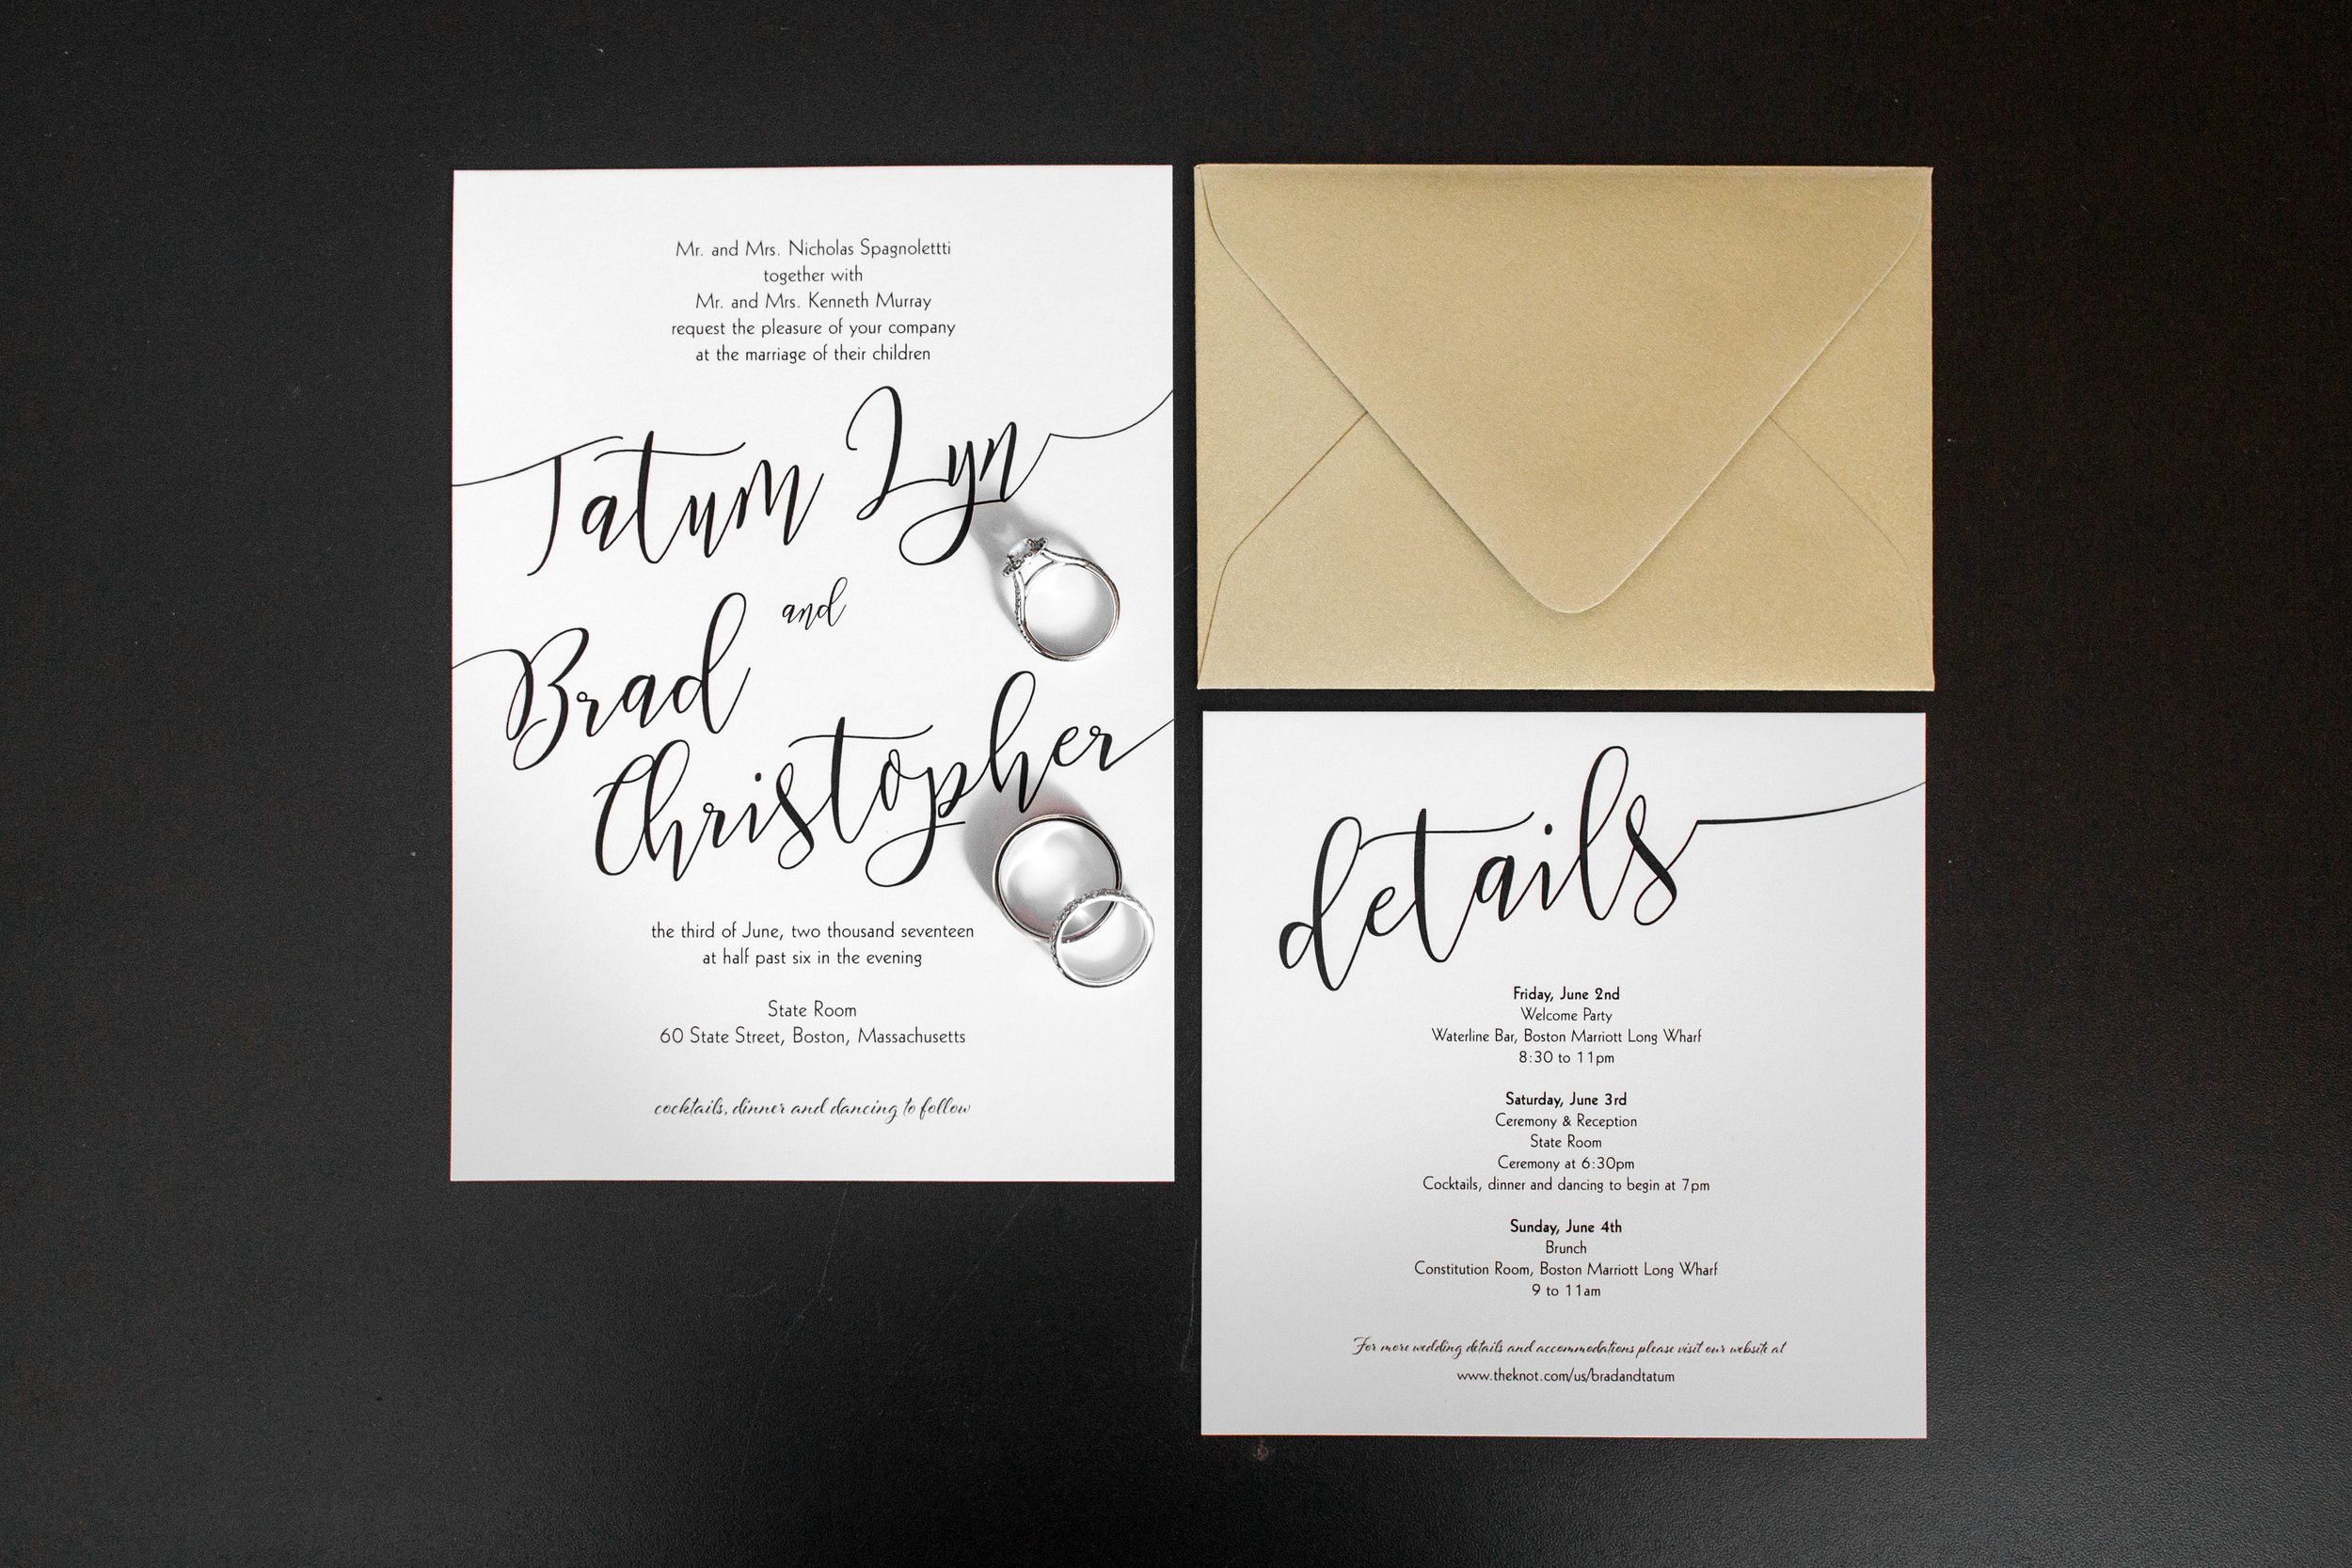 Mr. and Mrs. Nicholas Spagnolettti
together with
Mr. and Mrs. Kenneth Murray
request the pleasure of your company
at the marriage of their children
Tatum Lyn
and
Brad
Christopher
the third of June, two thousand seventeen
at half past six in the evening
State Room
60 State Street, Boston, Massachusetts
cocktails, dinner and dancing to follow
details
Friday, June 2nd
Welcome Party
Waterline Bar, Boston Marriott Long Wharf
8:30 to 11pm
Saturday, June 3rd
Ceremony & Reception
State Room
Ceremony at 6:30pm
Cocktails, dinner and dancing to begin at 7pm
Sunday, June 4th
Brunch
Constitution Room, Boston Marriott Long Wharf
9 to 11am
For more wedding details and accommodations please visit our website at
www.theknot.com/us/bradandtatum